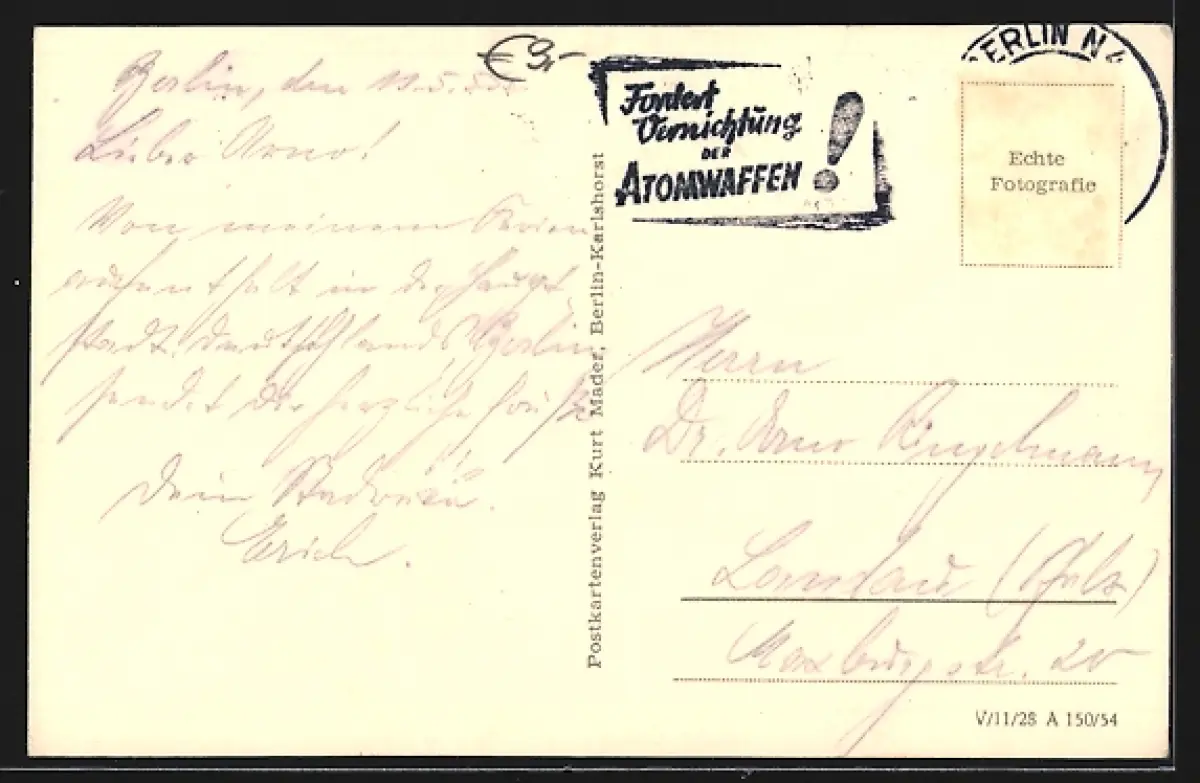 € 9,-
Berlin, den 11.5.55
Lieber Arno!
Von meinem Ferien
aufenthalt in der Haupt
stadt Deutschlands Berlin
sendet Dir herzliche Grüße
Dein
Erich.
Postkartenverlag Kurt Mader, Berlin-Karlshorst
Fordert
Vernichtung
DER
ATOMWAFFEN!
BERLIN N 4
Echte
Fotografie
Herrn
Dr. Arno Engelmann
Landau (Pfalz)
Maxburgstr. 20
V/11/28 A 150/54